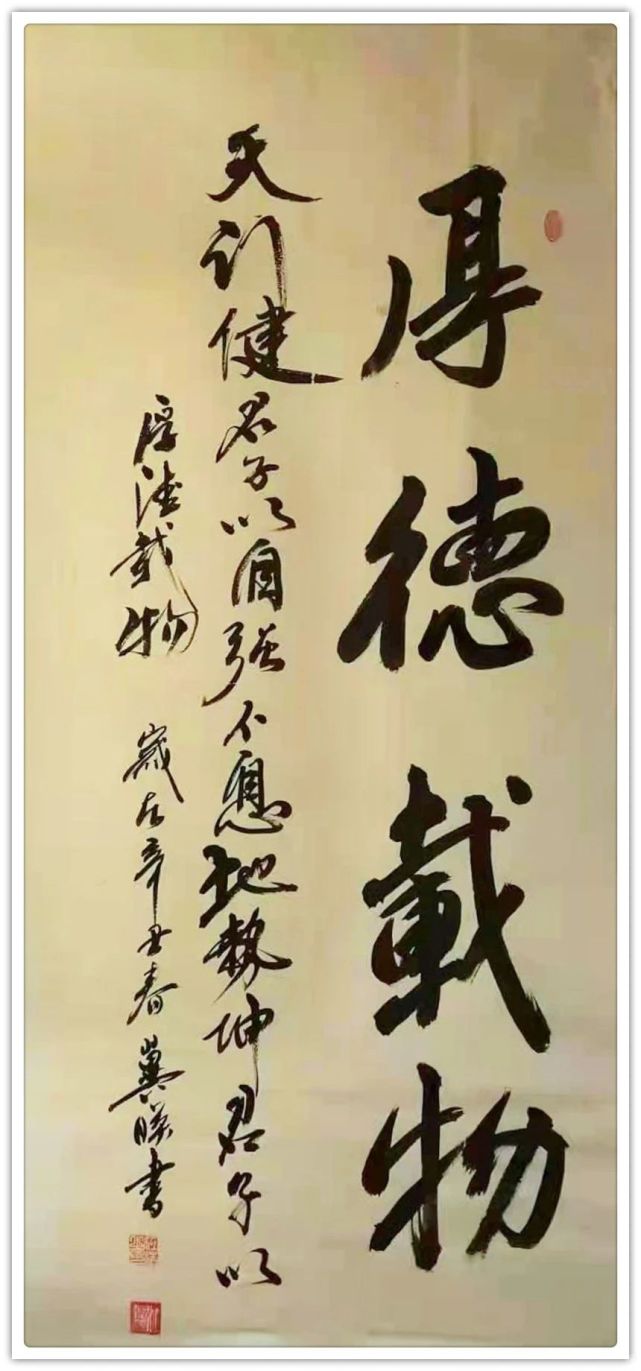 厚德載物
天行健君子以自强不息地勢坤君子以
厚德載物 歲在辛丑春 冀暎書